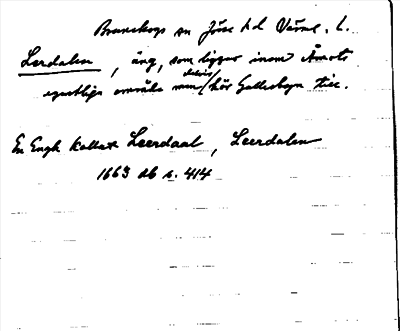 Brunskogs sn Jösse hd Värml. l.
Lerdalen, äng, som ligger inom Åmots
egentliga område men delvis hör Gallsbyn till.
En Engh kallat Leerdaal, Leerdalen
1663 db s. 414